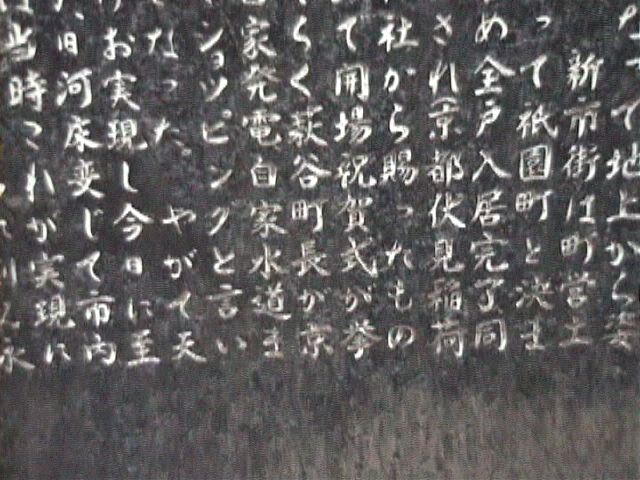 て地上から姿
新市街は町営土
って祇園町と決ま
め全戸入居完了同
され京都伏見稲荷
社から賜ったもの
て開場祝賀式が挙
らく萩谷町長が京
家発電自家水道ま
ショッピングと言い
なった。やがて天
お実現し今日に至
旧河床変じて市内
当時これが実現に